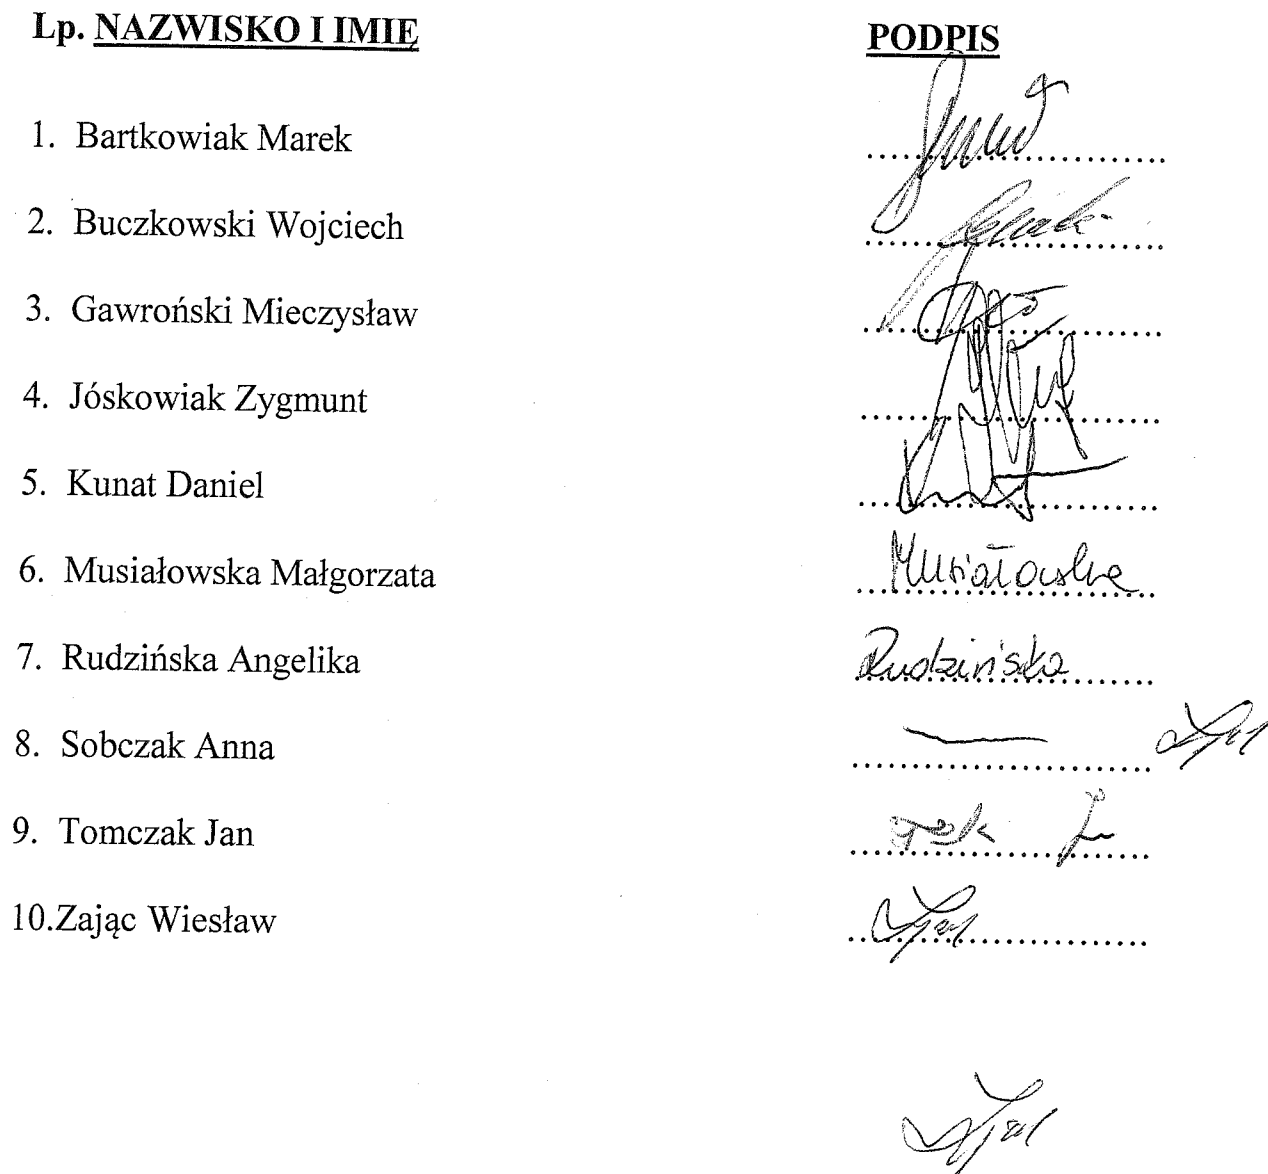 Lp. NAZWISKO I IMIĘ PODPIS
1. Bartkowiak Marek
2. Buczkowski Wojciech
3. Gawroński Mieczysław
4. Jóskowiak Zygmunt
5. Kunat Daniel
6. Musiałowska Małgorzata Musiałowska
7. Rudzińska Angelika Rudzińska
8. Sobczak Anna
9. Tomczak Jan
10.Zając Wiesław